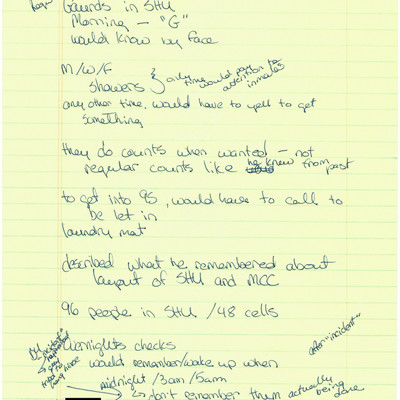 Gaurds in SHU
Morning - "G"
would know by face
M/W/F
showers } only time would pay attention to inmates
any other time, would have to yell to get
something
they do counts when wanted - not
regular counts like he knew from past
to get into 9S, would have to call to
be let in
laundry mat
described what he remembered about
layout of SHU and MCC
96 people in SHU / 48 cells
after "incident"
overnights checks
would remember/wake up when
midnight / 3am / 5am
don't remember them actually
being done